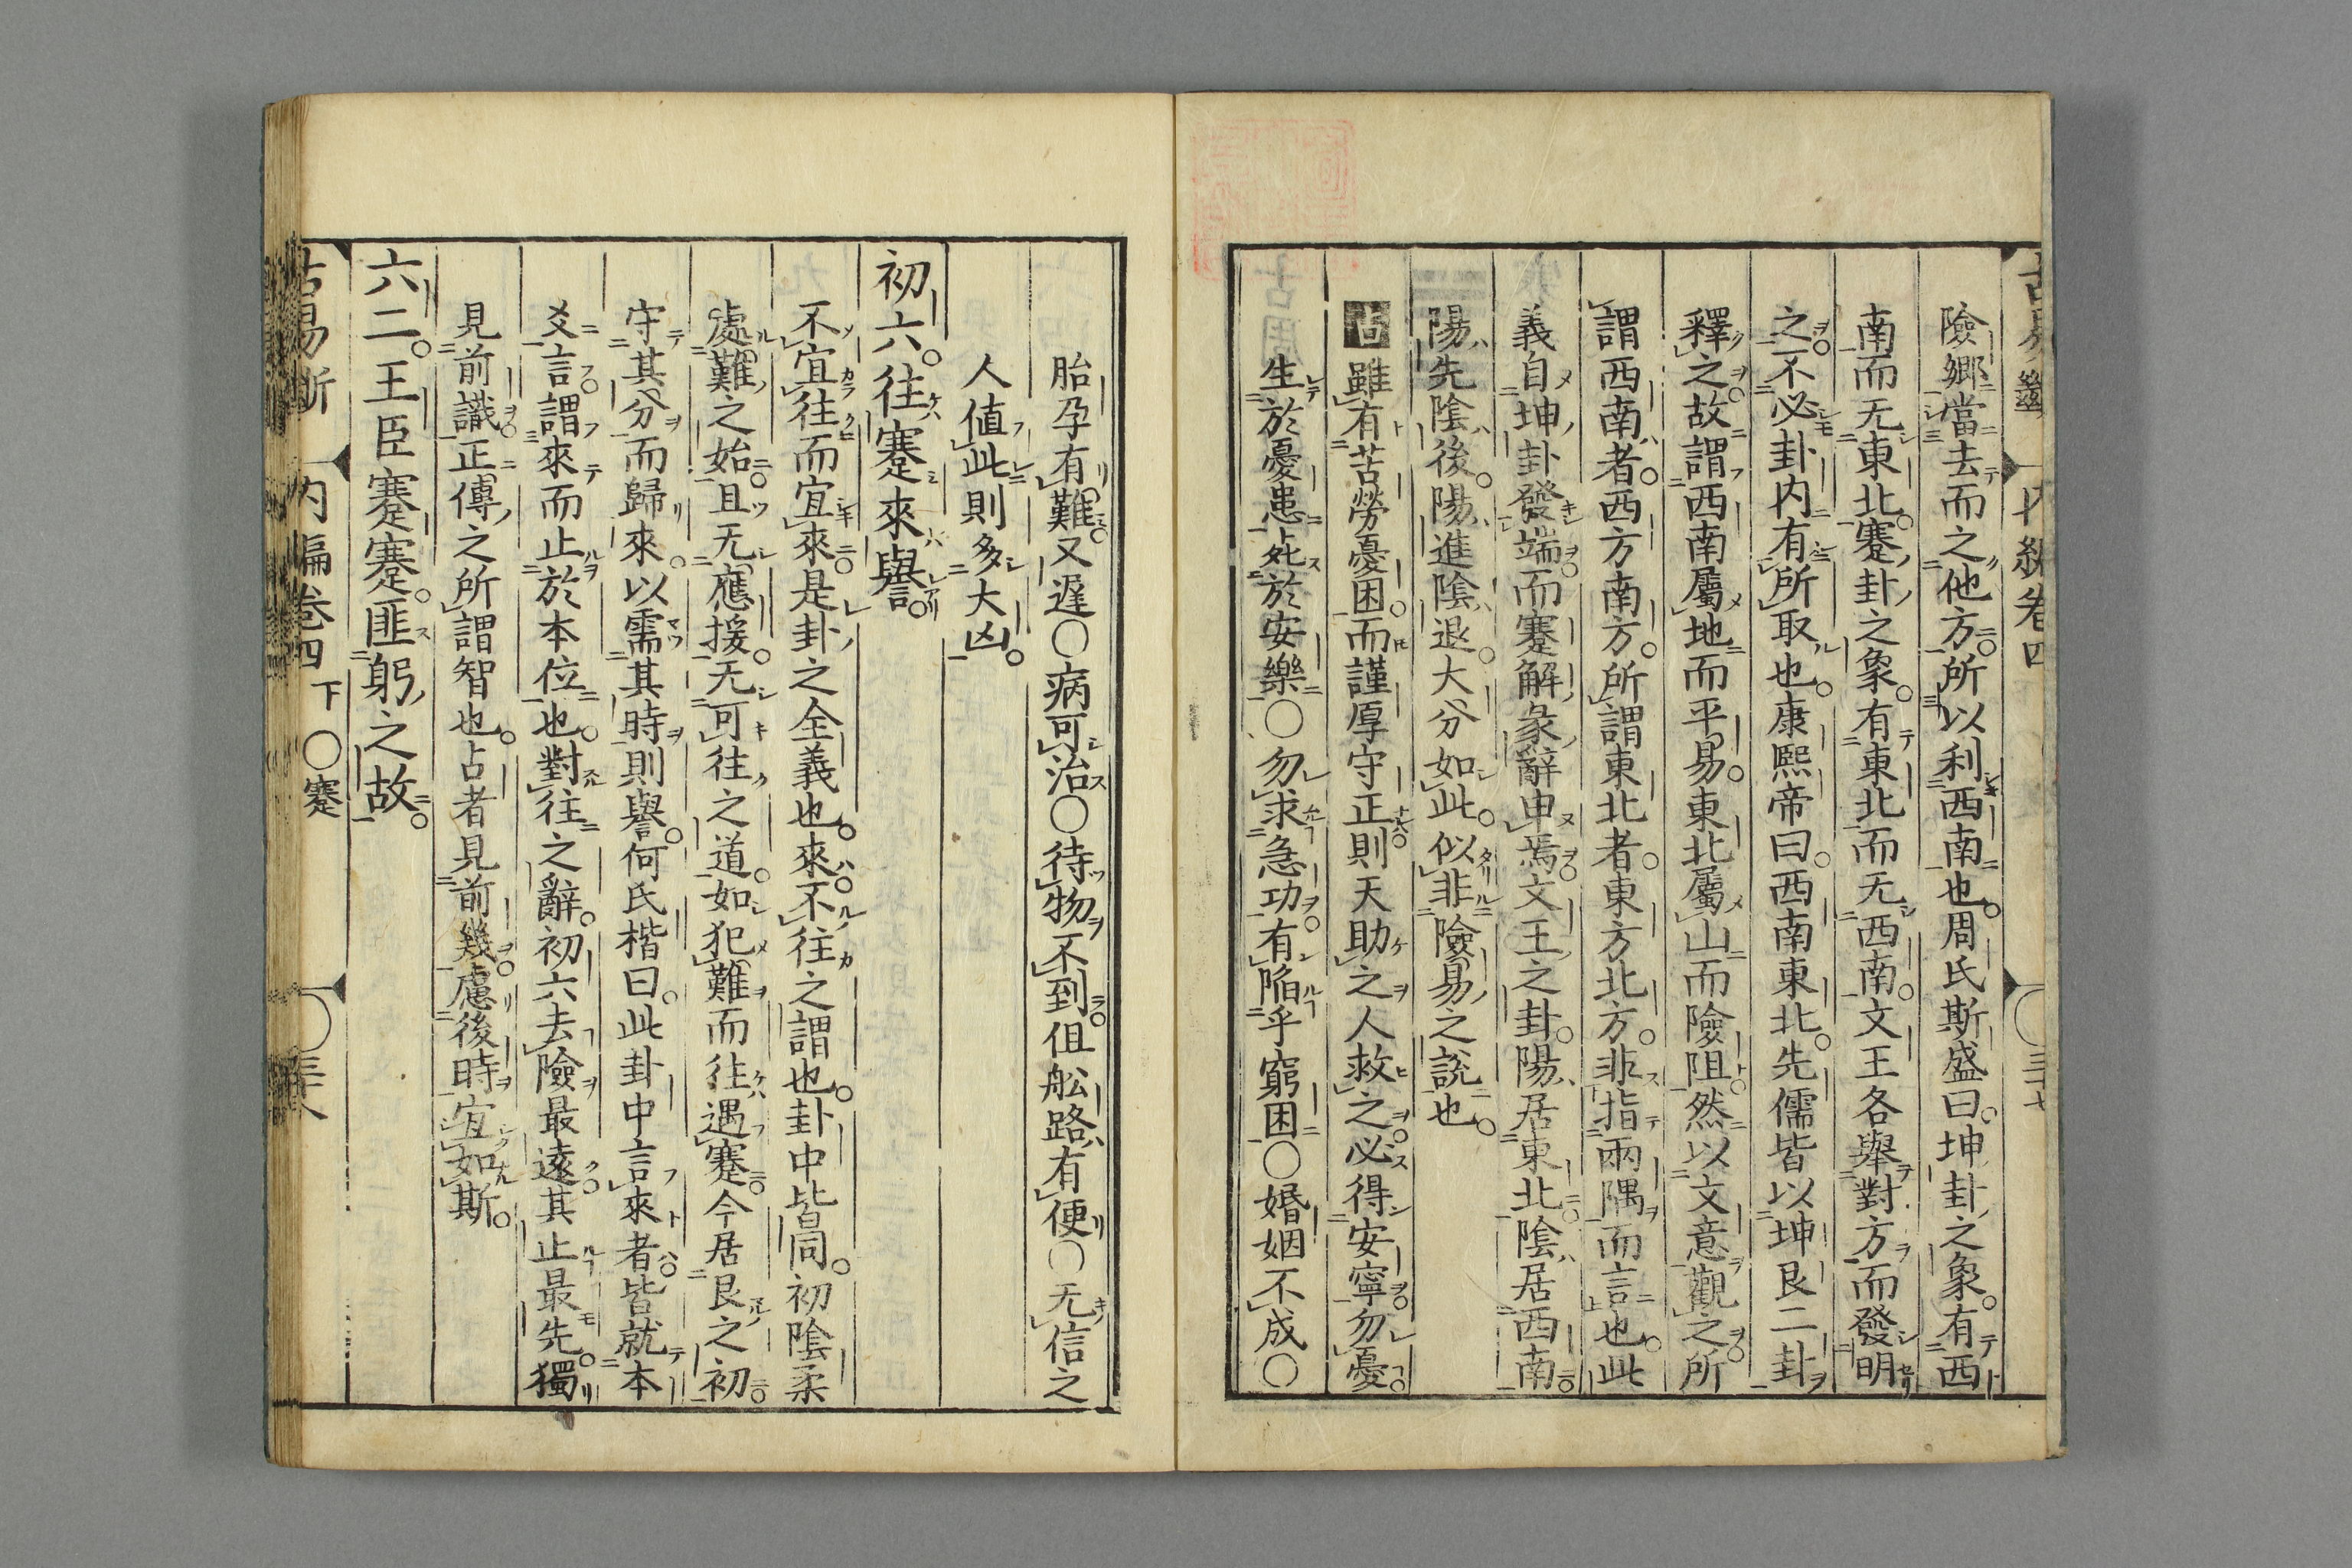 險鄉當去而之他方所以利西南也。周氏斯盛曰。坤卦之象。有西
南而无東北。蹇卦之象。有東北而无西南。文王各舉對方而發明
之。不必卦内有所取也。康熙帝曰。西南東北。先儒皆以坤艮二卦
釋之。故謂西南屬地而平易。東北屬山而險阻。然以文意觀之。所
謂西南者。西方南方。所謂東北者。東方北方。非指兩隅而言也。此
義自坤卦發端。而蹇解彖辭申焉。文王之卦。陽居東北。陰居西南。
陽先陰後。陽進陰退。大分如此。似非險易之說也。
占雖有苦勞憂困。而謹厚守正。則天助之人救之。必得安寧。勿憂。
生於憂患死於安樂〇勿求急功。有陷乎窮困〇婚姻不成〇
胎孕有難。又遲〇病可治〇待物不到。但舩路有便〇无信之
人値此則多大凶。
初六。往蹇來譽。
不宜往而宜來。是卦之全義也。來。不往之謂也。卦中皆同。初陰柔
處難之始。且无應援。无可往之道。如犯難而往。遇蹇。今居艮之初。
守其分而歸來。以需其時則譽。何氏楷曰。此卦中言來者。皆就本
爻言。謂來而止於本位也。對往之辭。初六去險最遠。其止最先。獨
見前識。正傳之所謂智也。占者見前幾。慮後時。宜如斯。
六二。王臣蹇蹇。匪躬之故。
古易斷 内編卷四 下 〇蹇